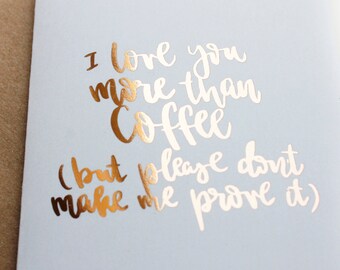 I love you
more than
Coffee
(but please don't
make me prove it)